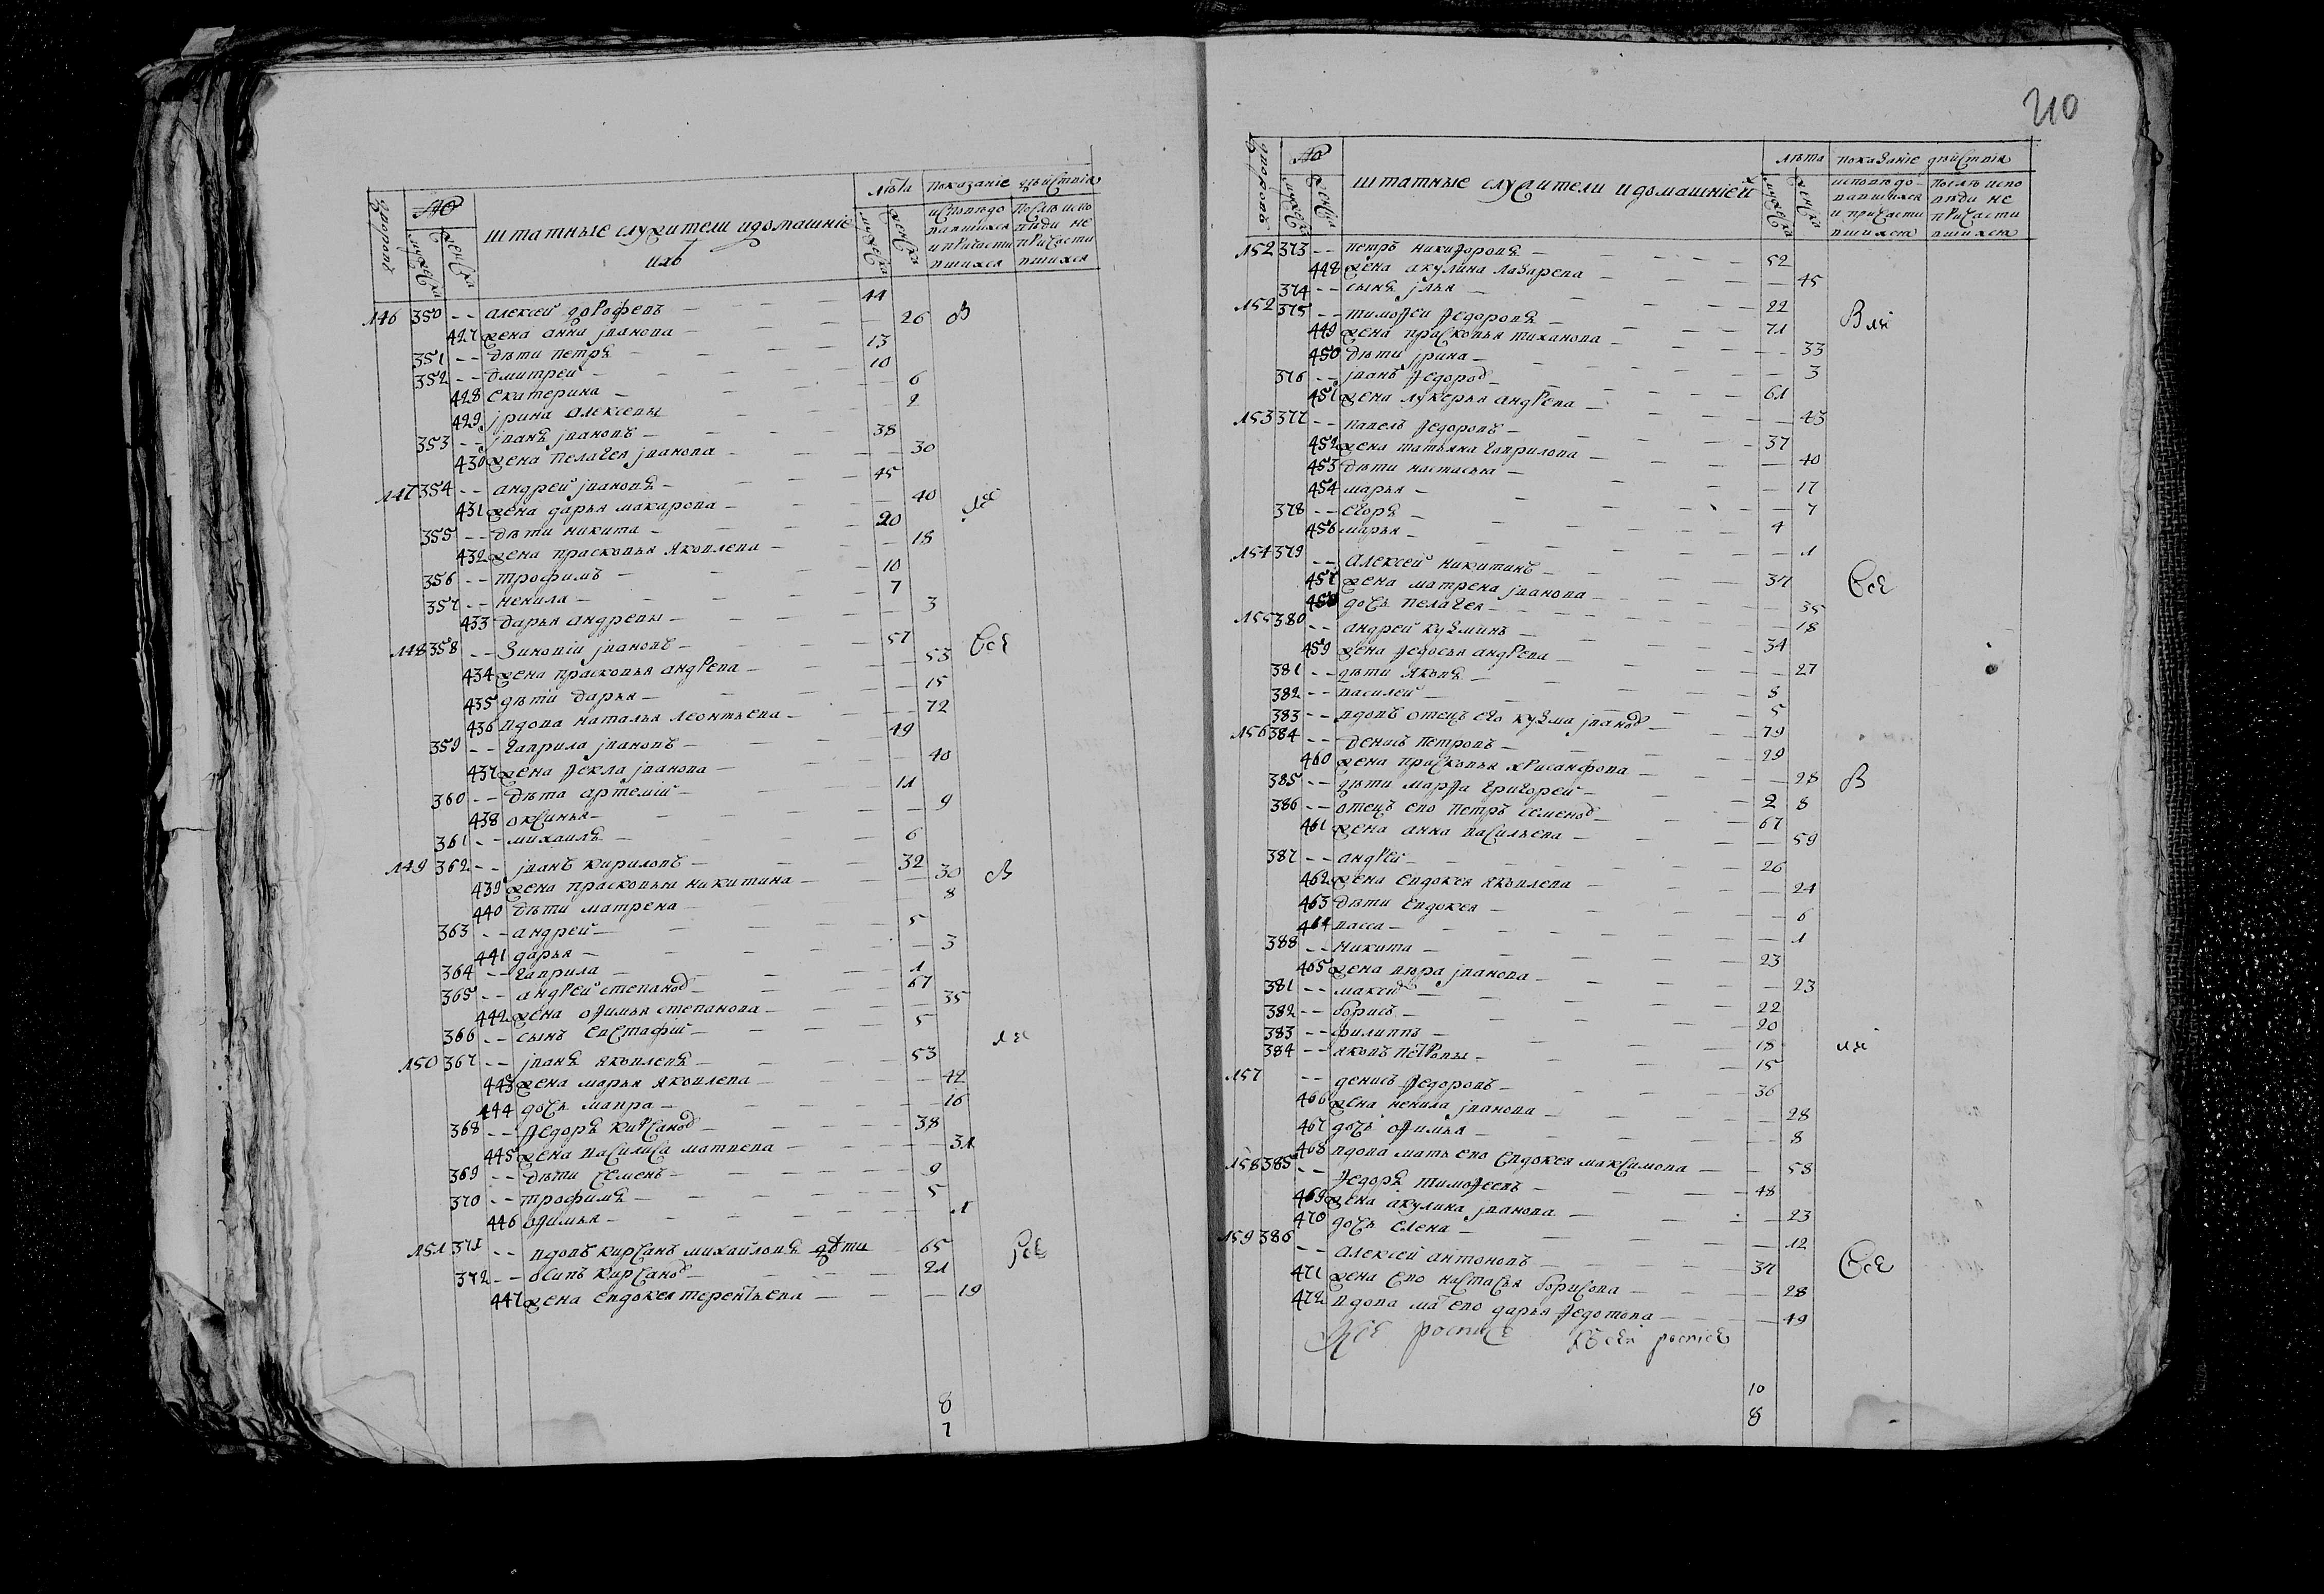 №
штатные служители и домашніе
ихъ
лѣта
показаніе дѣйствія
дворовъ
мужеска
женска
мужеска
женска
исповѣдо
вавшихся
и причасти
вшихся
послѣ испо
вѣди не
причасти
вшихся
146 350 -- алексей дорофеевъ — 44
427 жена анна іванова — 26
351 -- дѣти петръ — 13
352 -- дмитрей — 10
428 екатерина — 6
429 ірина алексеевы — 2
353 -- іванъ івановъ — 38
430 жена пелагея іванова — 30
147 354 -- андрей івановъ — 45
431 жена дарья макарова — 40
355 -- дѣти никита — 20
432 жена прасковья яковлева — 18
356 -- трофимъ — 10
357 -- ненила — 7
433 дарья андревы — 3
148 358 -- Зиновій івановъ — 57
434 жена прасковья андрева — 53
435 дѣти дарья — 15
436 вдова наталья леонтьева — 72
359 -- гаврила івановъ — 49
437 жена ѳекла іванова — 40
360 -- дѣта артемій — 11
438 оксинья — 9
361 -- михаилъ — 6
149 362 -- іванъ кириловъ — 32
439 жена прасковья никитина — 30
440 дѣти матрена — 8
363 -- андрей — 5
441 дарья — 3
364 -- гаврила — 1
365 -- андрей степановъ — 67
442 жена оѳимья степанова — 35
366 -- сынъ евстафій — 5
150 367 -- іванъ яковлевъ — 53
443 жена марья яковлева — 42
444 дочь мавра — 16
368 -- ѳедоръ кирсановъ — 38
445 жена василиса матвева — 31
369 -- дѣти семенъ — 9
370 -- трофимъ — 5
446 оѳимья — 1
151 371 -- вдовъ кирсанъ михайловъ дѣти 65
372 -- осипъ кирсановъ — 21
447 жена евдокея терентьева — 19
8
7
210
№
штатные служители и домашніей
лѣта
показаніе дѣйствія
дворовъ
мужеска
женска
мужеска
женска
исповѣдо
вавшихся
и причасти
вшихся
послѣ испо
вѣди не
причасти
вшихся
152 373 -- петръ никифоровъ — 52
448 жена акулина лазарева — 45
374 -- сынъ ілья — 22
152 375 -- тимоѳей ѳедоровъ — 71
449 жена прасковья тиханова — 33
450 дѣти ірина — 3
376 -- іванъ ѳедоров — 61
451 жена лукерья андрева — 43
153 377 -- павелъ ѳедоровъ — 37
452 жена татьяна гаврилова — 40
453 дѣти настасья — 17
454 марья — 7
378 -- егоръ — 4
456 марья — 1
154 379 -- Алексей никитинъ — 37
457 жена матрена іванова — 35
458 дочь пелагея — 18
155 380 -- андрей кузминъ — 34
459 жена ѳедосья андрева — 27
381 -- дѣти яковъ — 8
382 -- василей — 5
383 -- вдовъ отецъ его кузма іванов — 79
156 384 -- денисъ петровъ — 29
460 жена прасковья хрисанфова — 28
385 -- дѣти марѳа григорей — 2 8
386 -- отецъ ево петръ семенов — 67
461 жена анна васильева — 59
387 -- андрей — 26
462 жена евдокея яковлева — 24
463 дѣти евдокея — 6
464 васса — 1
388 -- никита — 23
465 жена вѣра іванова — 23
381 -- максим — 22
382 -- борисъ — 20
383 -- филиппъ — 18
384 -- яковъ петровы — 15
157 -- денисъ ѳедоровъ — 36
466 жена ненила іванова — 28
467 дочь оѳимья — 8
468 вдова мать ево евдокея максимова — 58
158 385 -- ѳедоръ тимоѳеевъ — 48
469 жена акулина іванова — 23
470 дочь елена — 12
159 386 -- алексей антоновъ — 37
471 жена ево настасья борисова — 28
472 вдова мать ево дарья ѳедотова — 49
10
8